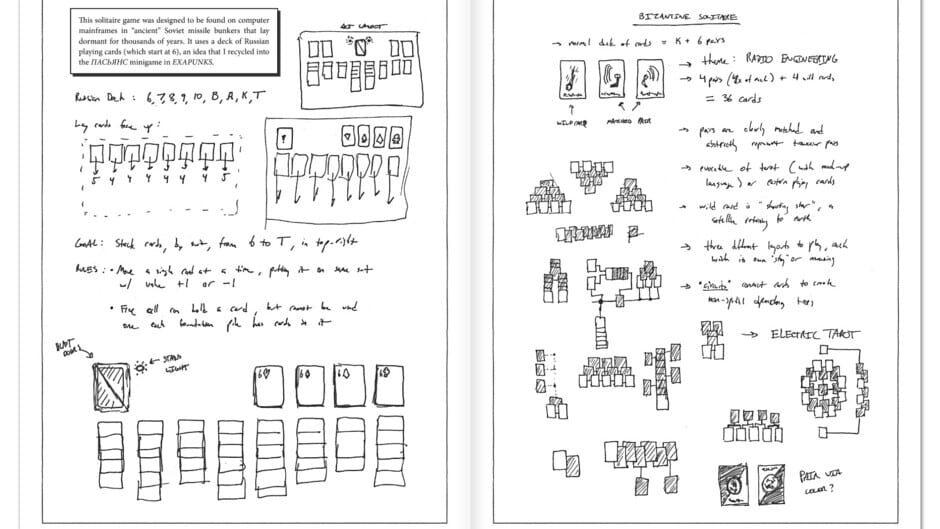 This solitaire game was designed to be found on computer
mainframes in "ancient" Soviet missile bunkers that lay
dormant for thousands of years. It uses a deck of Russian
playing cards (which start at 6), an idea that I recycled into
the ПАСЬЯНС minigame in EXAPUNKS.
Russian Deck : 6, 7, 8, 9, 10, B, A, K, T
Lay cards face up :
5 4 4 4 4 4 4 5
GOAL : Stack cards, by suit, from 6 to T, in top-right
RULES : • Move a single card at a time, putting it on same suit
w/ value +1 or -1
• Free cell can hold a card, but cannot be used
once each foundation pile has cards in it
BLAST DOORS
STATUS LIGHT
6 6 6 6
BIZANTINE SOLITAIRE
→ normal deck of cards = K + 6 pairs
→ theme : RADIO ENGINEERING
→ 4 pairs (4x of each) + 4 wild cards
= 36 cards
WILD CARD
MATCHED PAIR
→ pairs are clearly matched and
abstractly represent transceiver pairs
→ evocative of tarot (with made-up
language) or eastern playing cards
→ wild card is "shooting star", a
satellite returning to earth
→ three different layouts to play, each
which is own "story" or meaning
→ "circuits" connect cards to create
non-spatial dependency trees
→ ELECTRIC TAROT
PAIR VIA
COLOR?